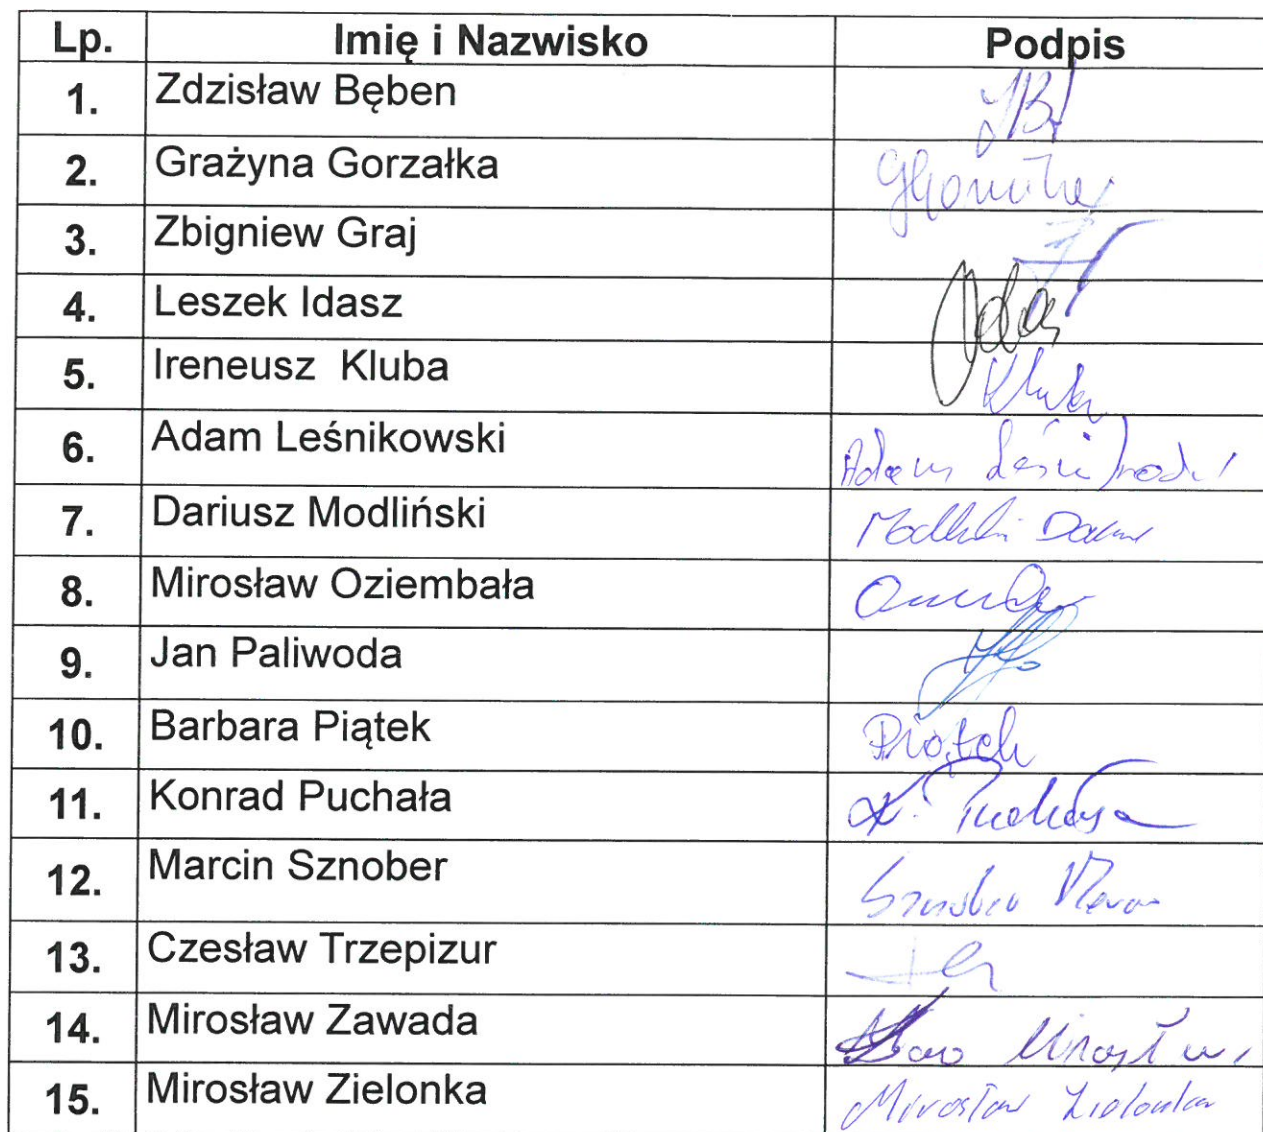 Lp. Imię i Nazwisko Podpis
1. Zdzisław Bęben
2. Grażyna Gorzałka
3. Zbigniew Graj
4. Leszek Idasz
5. Ireneusz Kluba Kluba
6. Adam Leśnikowski Adam
7. Dariusz Modliński
8. Mirosław Oziembała
9. Jan Paliwoda
10. Barbara Piątek Piątek
11. Konrad Puchała K. Puchała
12. Marcin Sznober
13. Czesław Trzepizur
14. Mirosław Zawada
15. Mirosław Zielonka Mirosław Zielonka